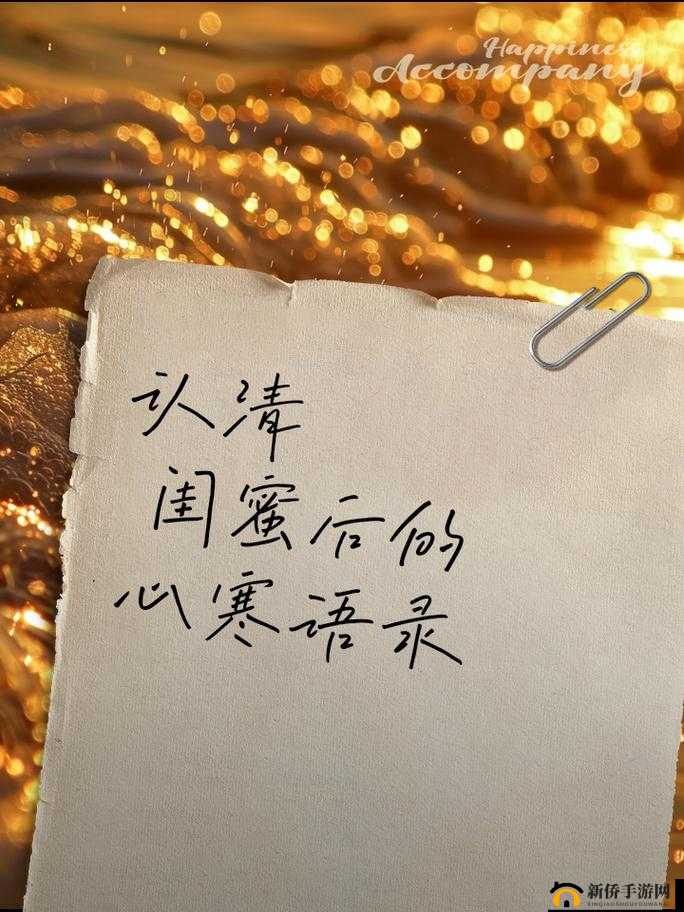 Happiness
Accompany
认清
闺蜜后的
心寒语录
新侨手游网
XINQIAOSHOUYOUWANG